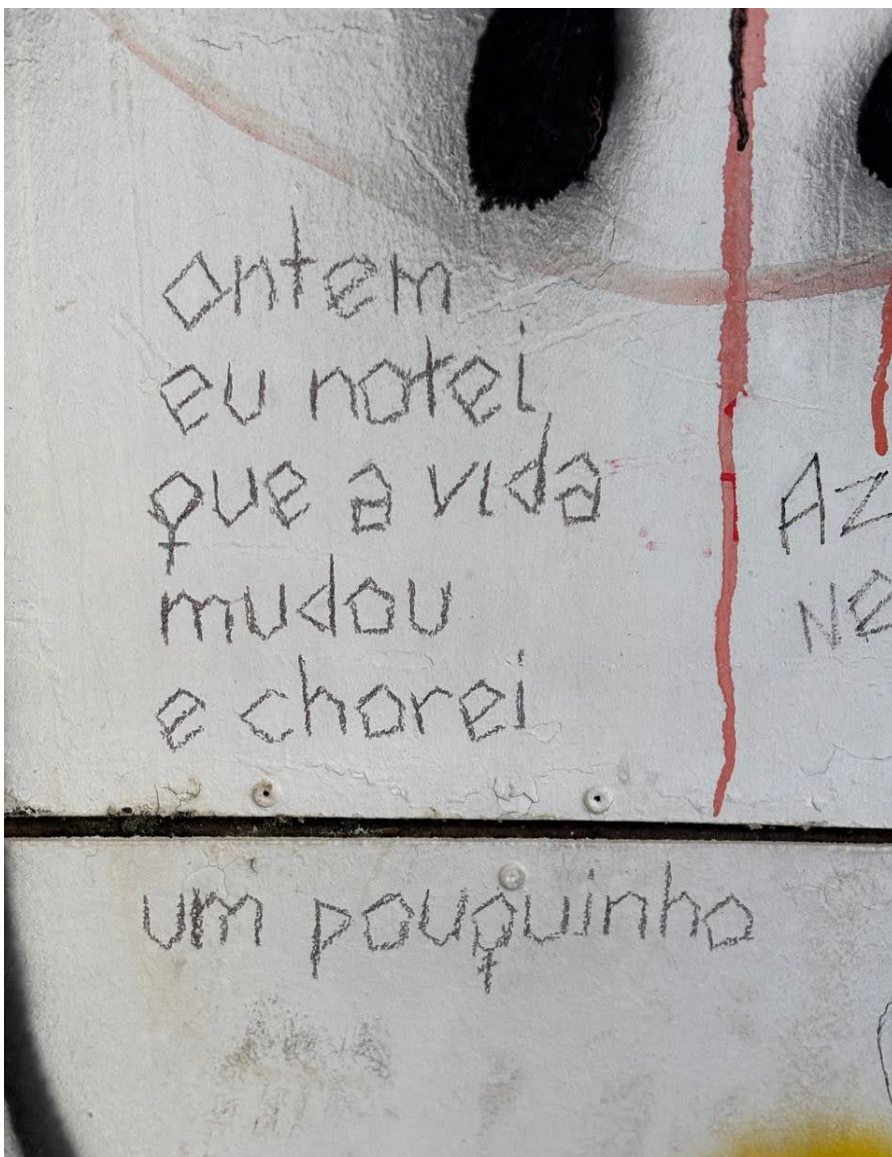 ontem
eu notei
que a vida
mudou
e chorei
um pouquinho
AZ
Ne